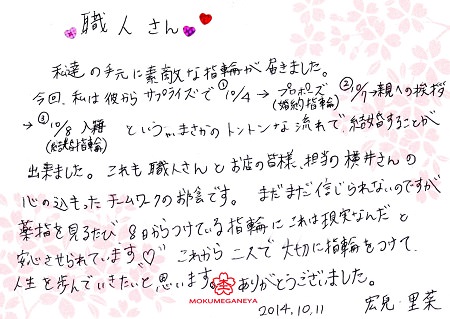 職人さん
私達の手元に素敵な指輪が届きました。
今回、私は彼からサプライズで ①10/4 → プロポーズ(婚約指輪) ②10/7→親への挨拶
→ ③10/8 入籍(結婚指輪) という、まさかのトントンな流れで、結婚することが
出来ました。これも職人さんとお店の皆様、担当の横井さんの
心の込もったチームワークのお陰です。まだまだ信じられないのですが
薬指を見るたび 8日からつけている指輪にこれは現実なんだと
安心させられています♡ これから二人で大切に指輪をつけて、
人生を歩んでいきたいと思います。ありがとうございました。
MOKUMEGANEYA
2014.10.11 宏・里菜